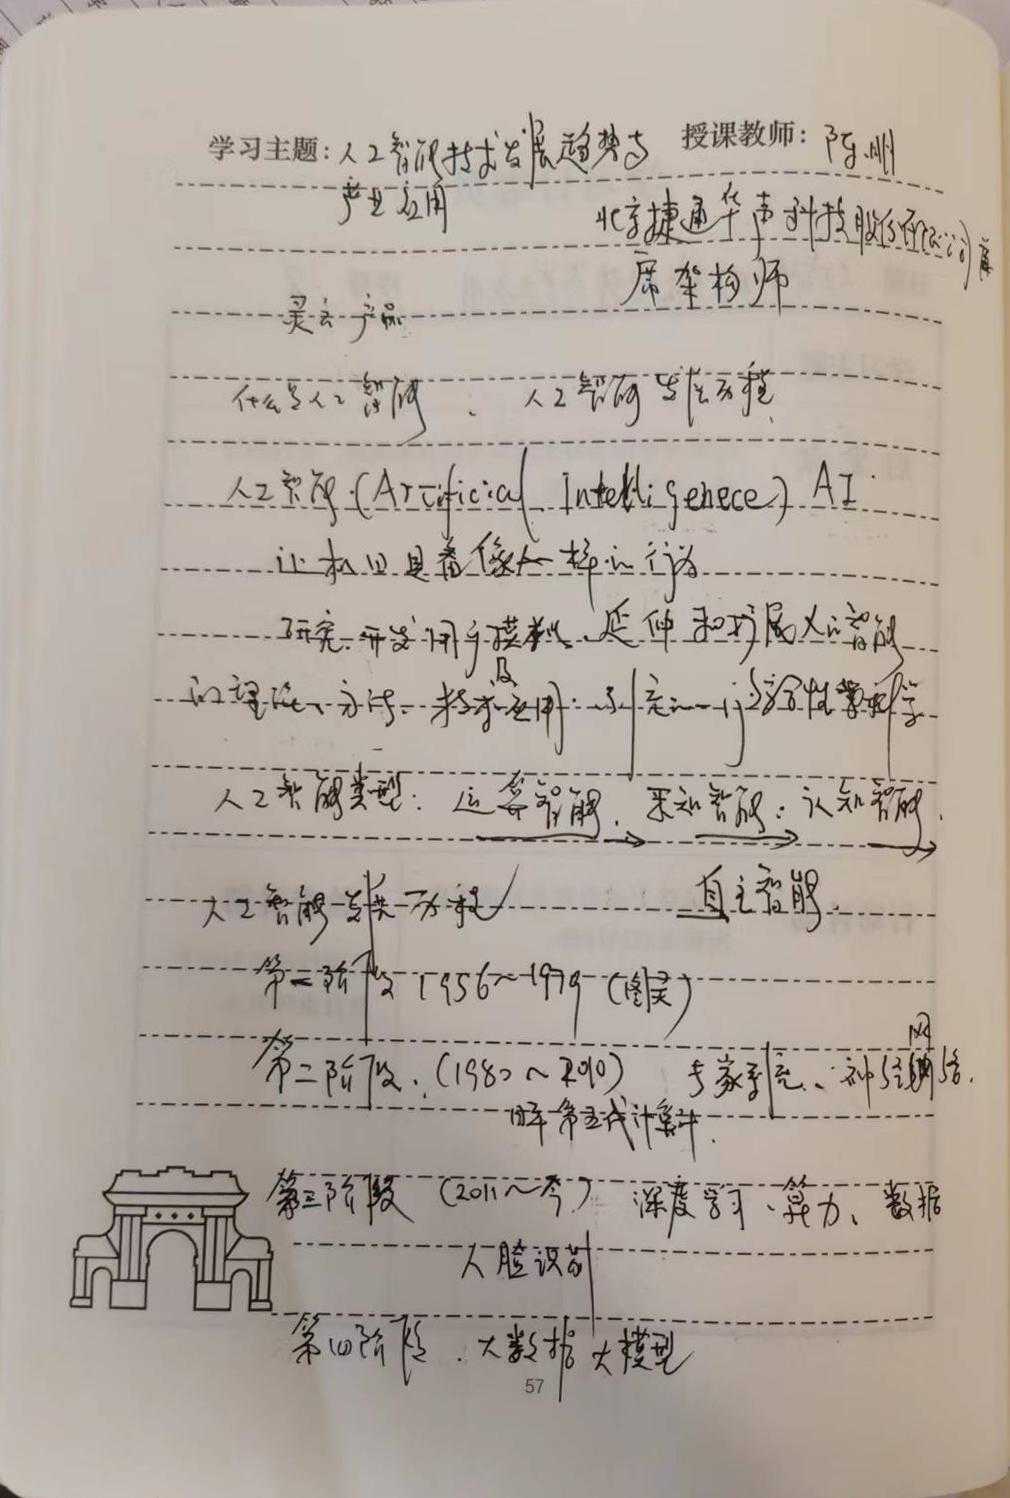 学习主题：人工智能技术发展趋势与 授课教师：陈刚
产业应用
北京捷通华声科技股份有限公司首
席架构师
灵云产品
什么是人工智能、人工智能发展历程
人工智能（Artificial Intelligenece）AI
让机器具备像人一样的行为
研究、开发用于模拟、延伸和扩展人的智能
的理论、方法、技术及应用系统的一门综合性学科
人工智能类型：运算智能、感知智能、认知智能、
自主智能
人工智能发展历程
第一阶段 1956～1979（图灵）
第二阶段、（1980～2010） 专家系统、神经网络、
日本第五代计算机
第三阶段（2011～今） 深度学习、算力、数据
人脸识别
第四阶段、大数据大模型
57